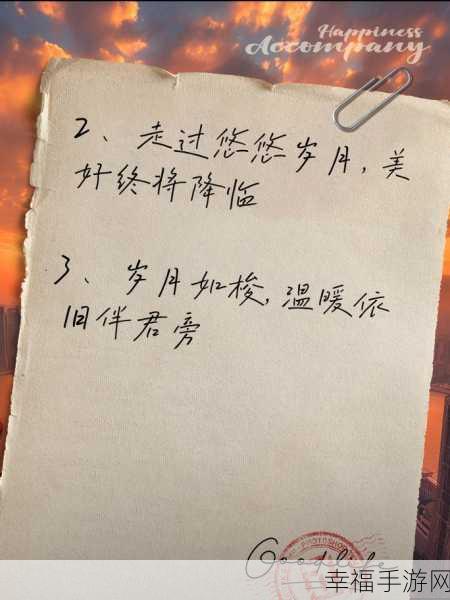 Happiness
Accompany
2、走过悠悠岁月,美
好终将降临
3、岁月如梭,温暖依
旧伴君旁
Good life
幸福手游网